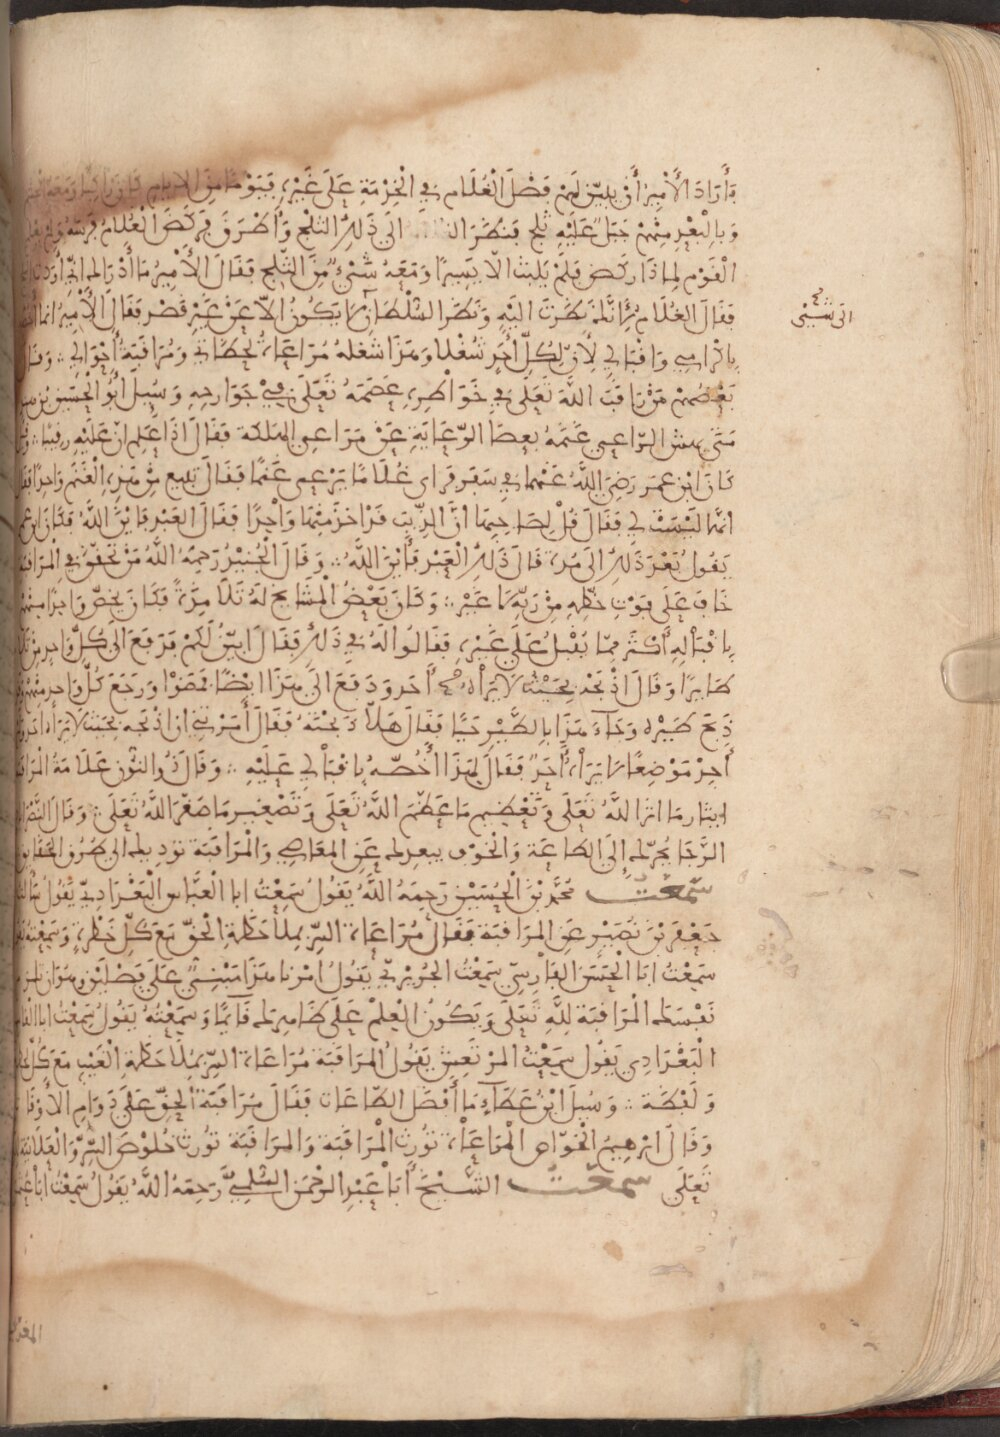 فأراد الأمير أن يبين لهم فضل الغلام في الخدمة على غيره فيوما من الايام كان راكبا ومعه
وبالبعد منهم جبل عليه ثلج فنظر الى ذلك الثلج وأطرق فركض الغلام فرسه ولم يعلم
القوم لماذا ركض فلم يلبث الا يسيرا ومعه شئ من الثلج فقال الأمير ما أدراك اني أردت
فقال الغلام لأنك نظرت اليه ونظر السلطان لا يكون الا عن غير قصد فقال الأمير انما
الى شئ
باكرامي واقبالي لأن لكل أحد شغلا وهذا شغله مراعاة لحظاتي ومراقبة أحوالي وقال
بعضهم من راقب الله تعلى في خواطره عصمه تعلى في جوارحه وسيل أبو الحسين بن
متى يهش الراعي غنمه بعصا الرعاية عن مراعي الهلكة فقال اذا علم ان عليه رقيبا
كان ابن عمر رضي الله عنهما في سفر فراى غلاما يرعى غنما فقال تبيع من هذه الغنم واحدا
انها ليست لي فقال قل لصاحبها ان الذيب قد اخذ منها واحدا فقال العبد فاين الله فكان ابن عمر
يقول بعد ذلك الى مدة قال ذلك العبد فأين الله وقال الجنيد رحمه الله من تحقق في المراقبة
خاف على فوت حظه من ربه لا غير وكان بعض المشايخ له تلامذة فكان يخص واحدا منهم
باقباله أكثر مما يقبل على غيره فقالوا له في ذلك فقال ابين لكم فدفع الى كل واحد من
طايرا وقال اذبحه بحيث لا يراه أحد ودفع الى هذا ايضا فمضوا ورجع كل واحد منهم
ذبح طيره وجاء هذا بالطير حيا فقال هلا ذبحته فقال أمرتني ان اذبحه بحيث لا يراه احد
أجد موضعا لا يراه أحد فقال لهذا أخصه باقبالي عليه وقال ذو النون علامة المراقبة
ايثار ما اثر الله تعلى وتعظيم ما عظم الله تعلى وتصغير ما صغر الله تعلى وقال
الرجا يحركك إلى الطاعة والخوف يبعدك عن المعاصي والمراقبة توديك الى طرق الحقايق
سمعت محمد بن الحسين رحمه الله يقول سمعت ابا العباس البغدادي يقول
جعفر بن نصير عن المراقبة فقال مراعاة السر بملاحظة الحق مع كل خطرة وسمعته
سمعت ابا الحسن الفارسي سمعت الجريري يقول امرنا هذا مبني على فصلين وهو ان تلزم
نفسك المراقبة لله تعلى ويكون العلم على ظاهرك قايما وسمعته يقول سمعت ابا
البغدادي يقول سمعت المرتعش يقول المراقبة مراعاة السر بملاحظة الغيب مع كل
ولفظة وسيل ابن عطاء ما أفضل الطاعات فقال مراقبة الحق على دوام الأوقات
وقال ابرهيم الخواص المراعاة تورث المراقبة والمراقبة تورث خلوص السر والعلانية
تعلى سمعت الشيخ أبا عبد الرحمن السلمي رحمه الله يقول سمعت ابا